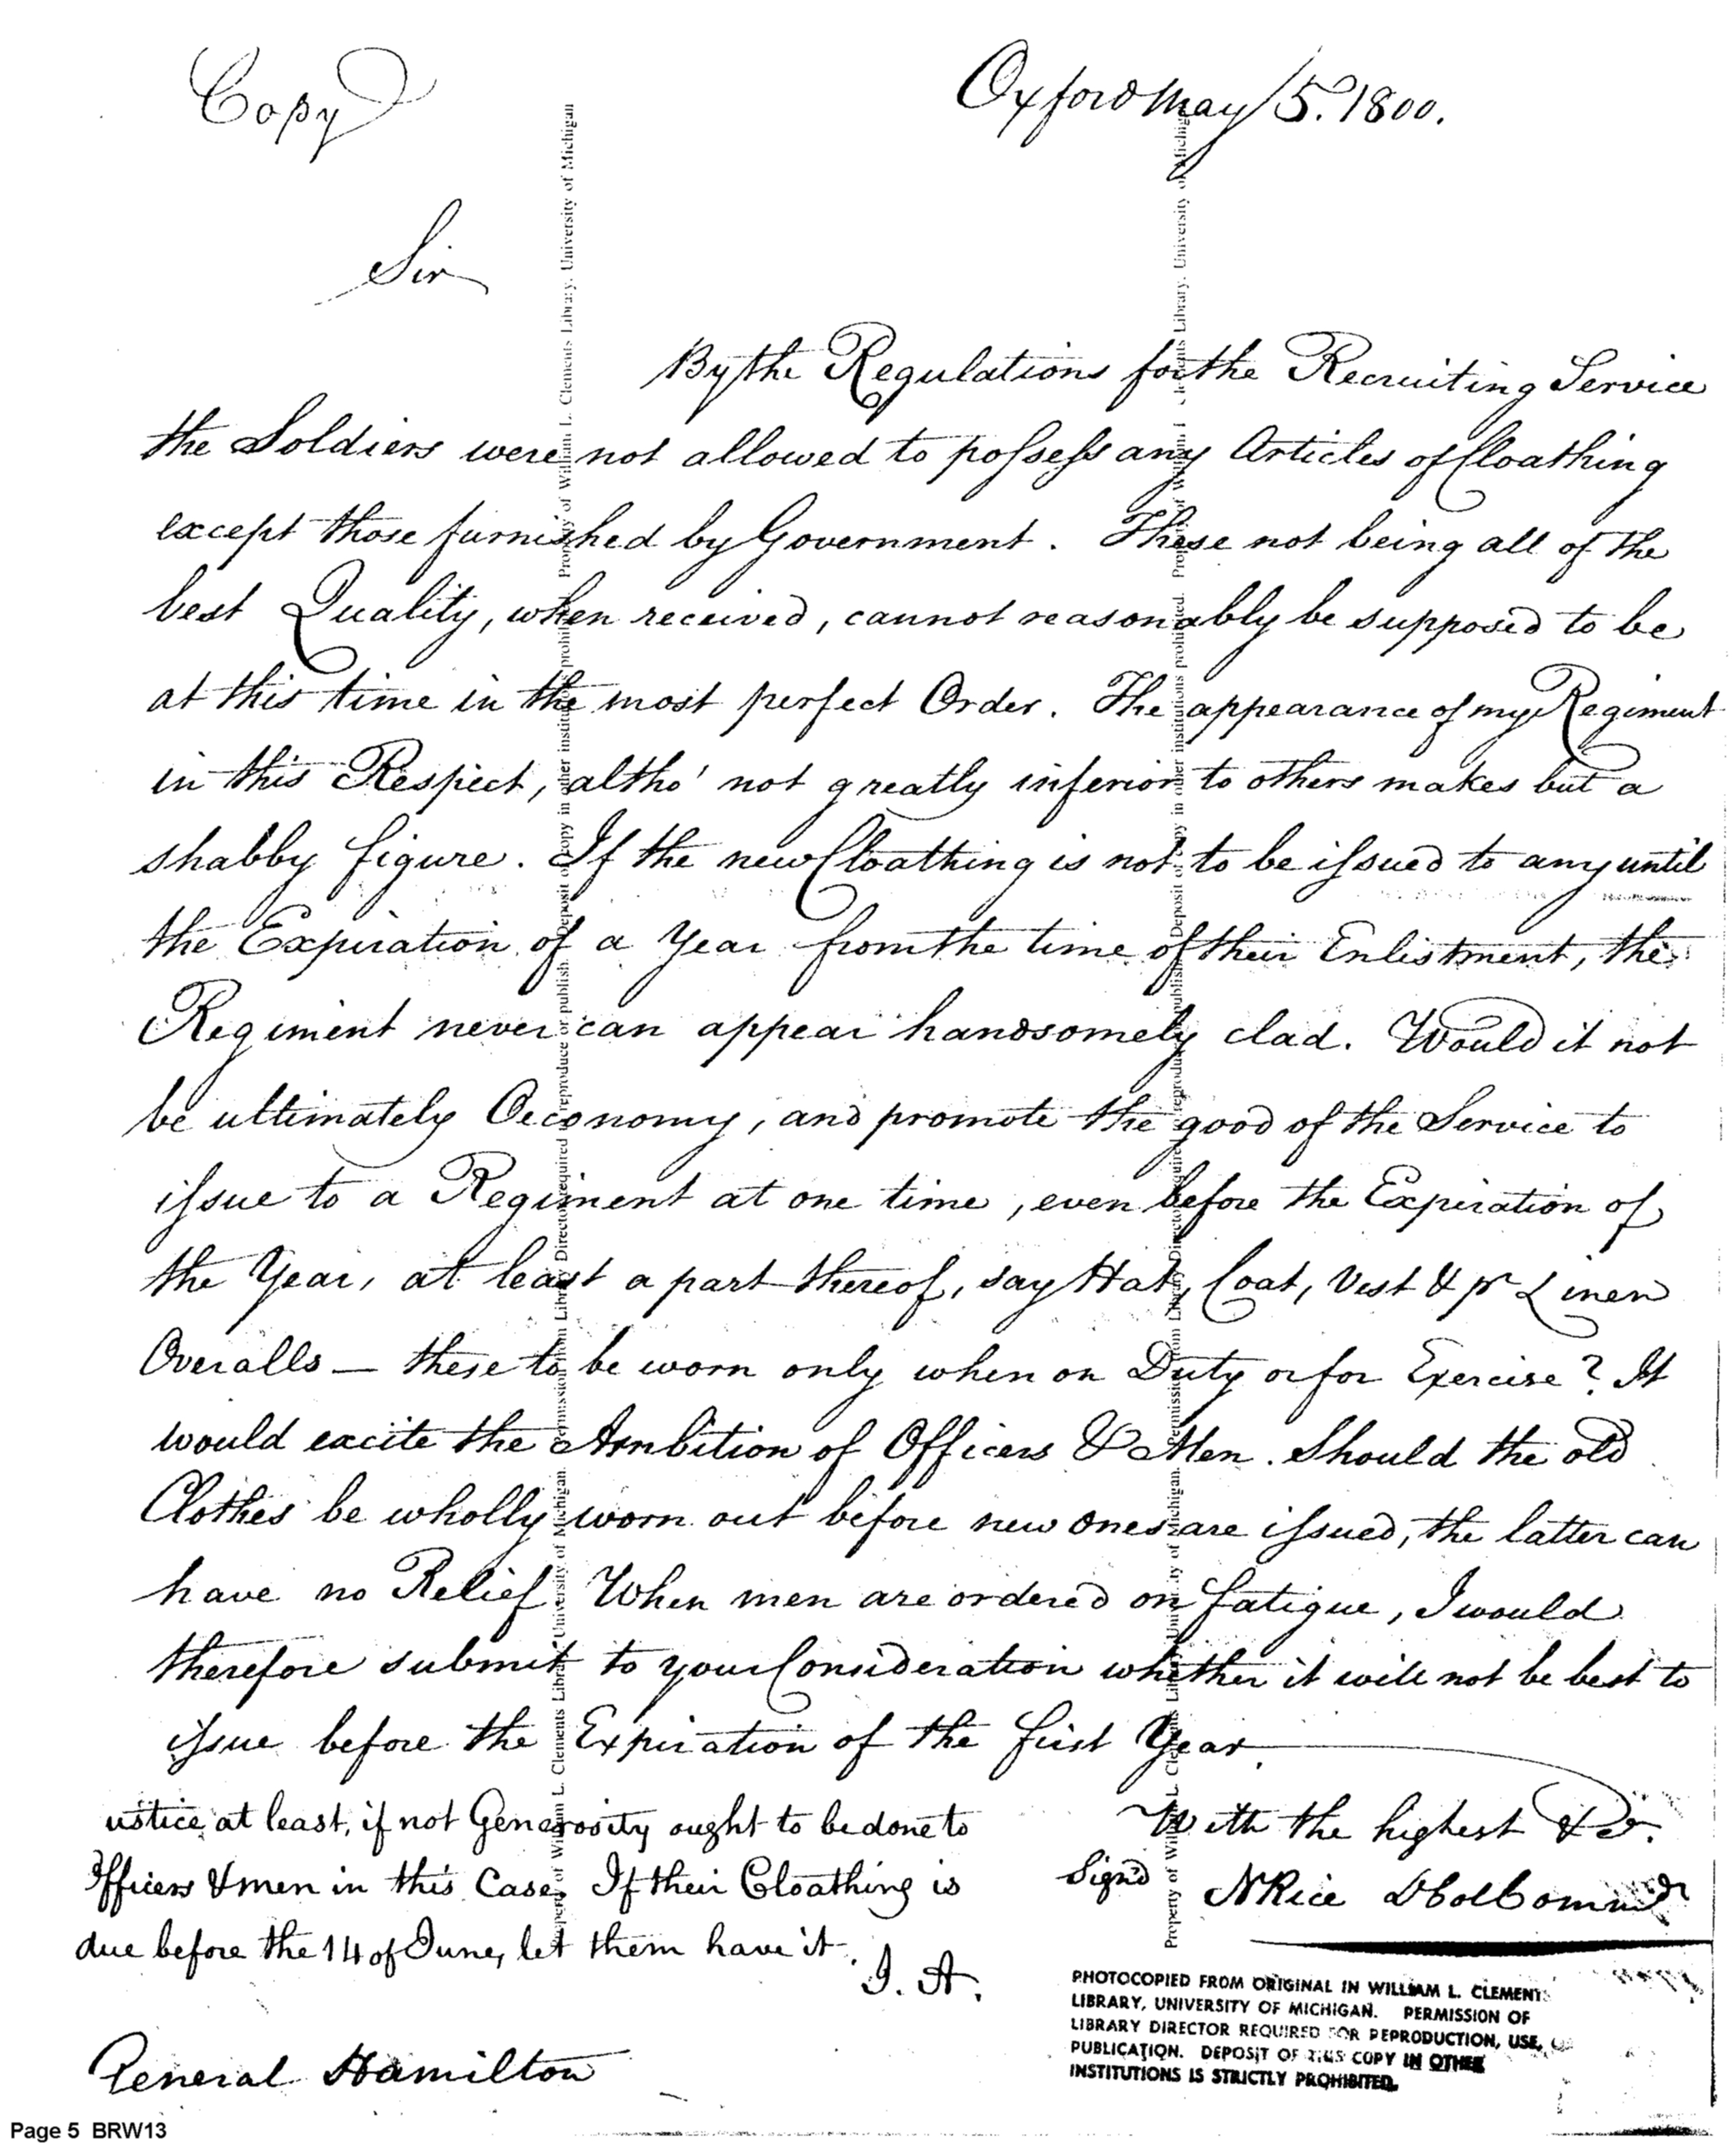 Copy
Oxford May 5. 1800.
Sir
By the Regulations for the Recruiting Service
the Soldiers were not allowed to possess any Articles of Cloathing
except those furnished by Government. These not being all of the
best Quality, when received, cannot reasonably be supposed to be
at this time in the most perfect Order. The appearance of my Regiment
in this Respect, altho' not greatly inferior to others makes but a
shabby figure. If the new Cloathing is not to be issued to any until
the Expiration of a Year from the time of their Enlistment, the
Regiment never can appear handsomely clad. Would it not
be ultimately Oeconomy, and promote the good of the Service to
issue to a Regiment at one time, even before the Expiration of
the Year, at least a part thereof, say Hat, Coat, Vest & pr Linen
Overalls — these to be worn only when on Duty or for Exercise? It
would excite the Ambition of Officers & Men. Should the old
Clothes be wholly worn out before new ones are issued, the latter can
have no Relief When men are ordered on fatigue, I would
therefore submit to your Consideration whether it will not be best to
issue before the Expiration of the first Year.
With the highest &c.
Signd NRice
ustice at least, if not Generosity ought to be done to
Officers & men in this Case. If their Cloathing is
due before the 14 of June, let them have it.
J. A.
General Hamilton
Property of William L. Clements Library, University of Michigan. Permission from Library Director required to reproduce or publish. Deposit of copy in other institutions prohibited. Property of William L. Clements Library, University of Michigan
Property of William L. Clements Library, University of Michigan. Permission from Library Director required to reproduce or publish. Deposit of copy in other institutions prohibited. Property of William L. Clements Library, University of Michigan
PHOTOCOPIED FROM ORIGINAL IN WILLIAM L. CLEMENTS
LIBRARY, UNIVERSITY OF MICHIGAN. PERMISSION OF
LIBRARY DIRECTOR REQUIRED FOR REPRODUCTION, USE, OR
PUBLICATION. DEPOSIT OF THIS COPY IN OTHER
INSTITUTIONS IS STRICTLY PROHIBITED.
Page 5 BRW13